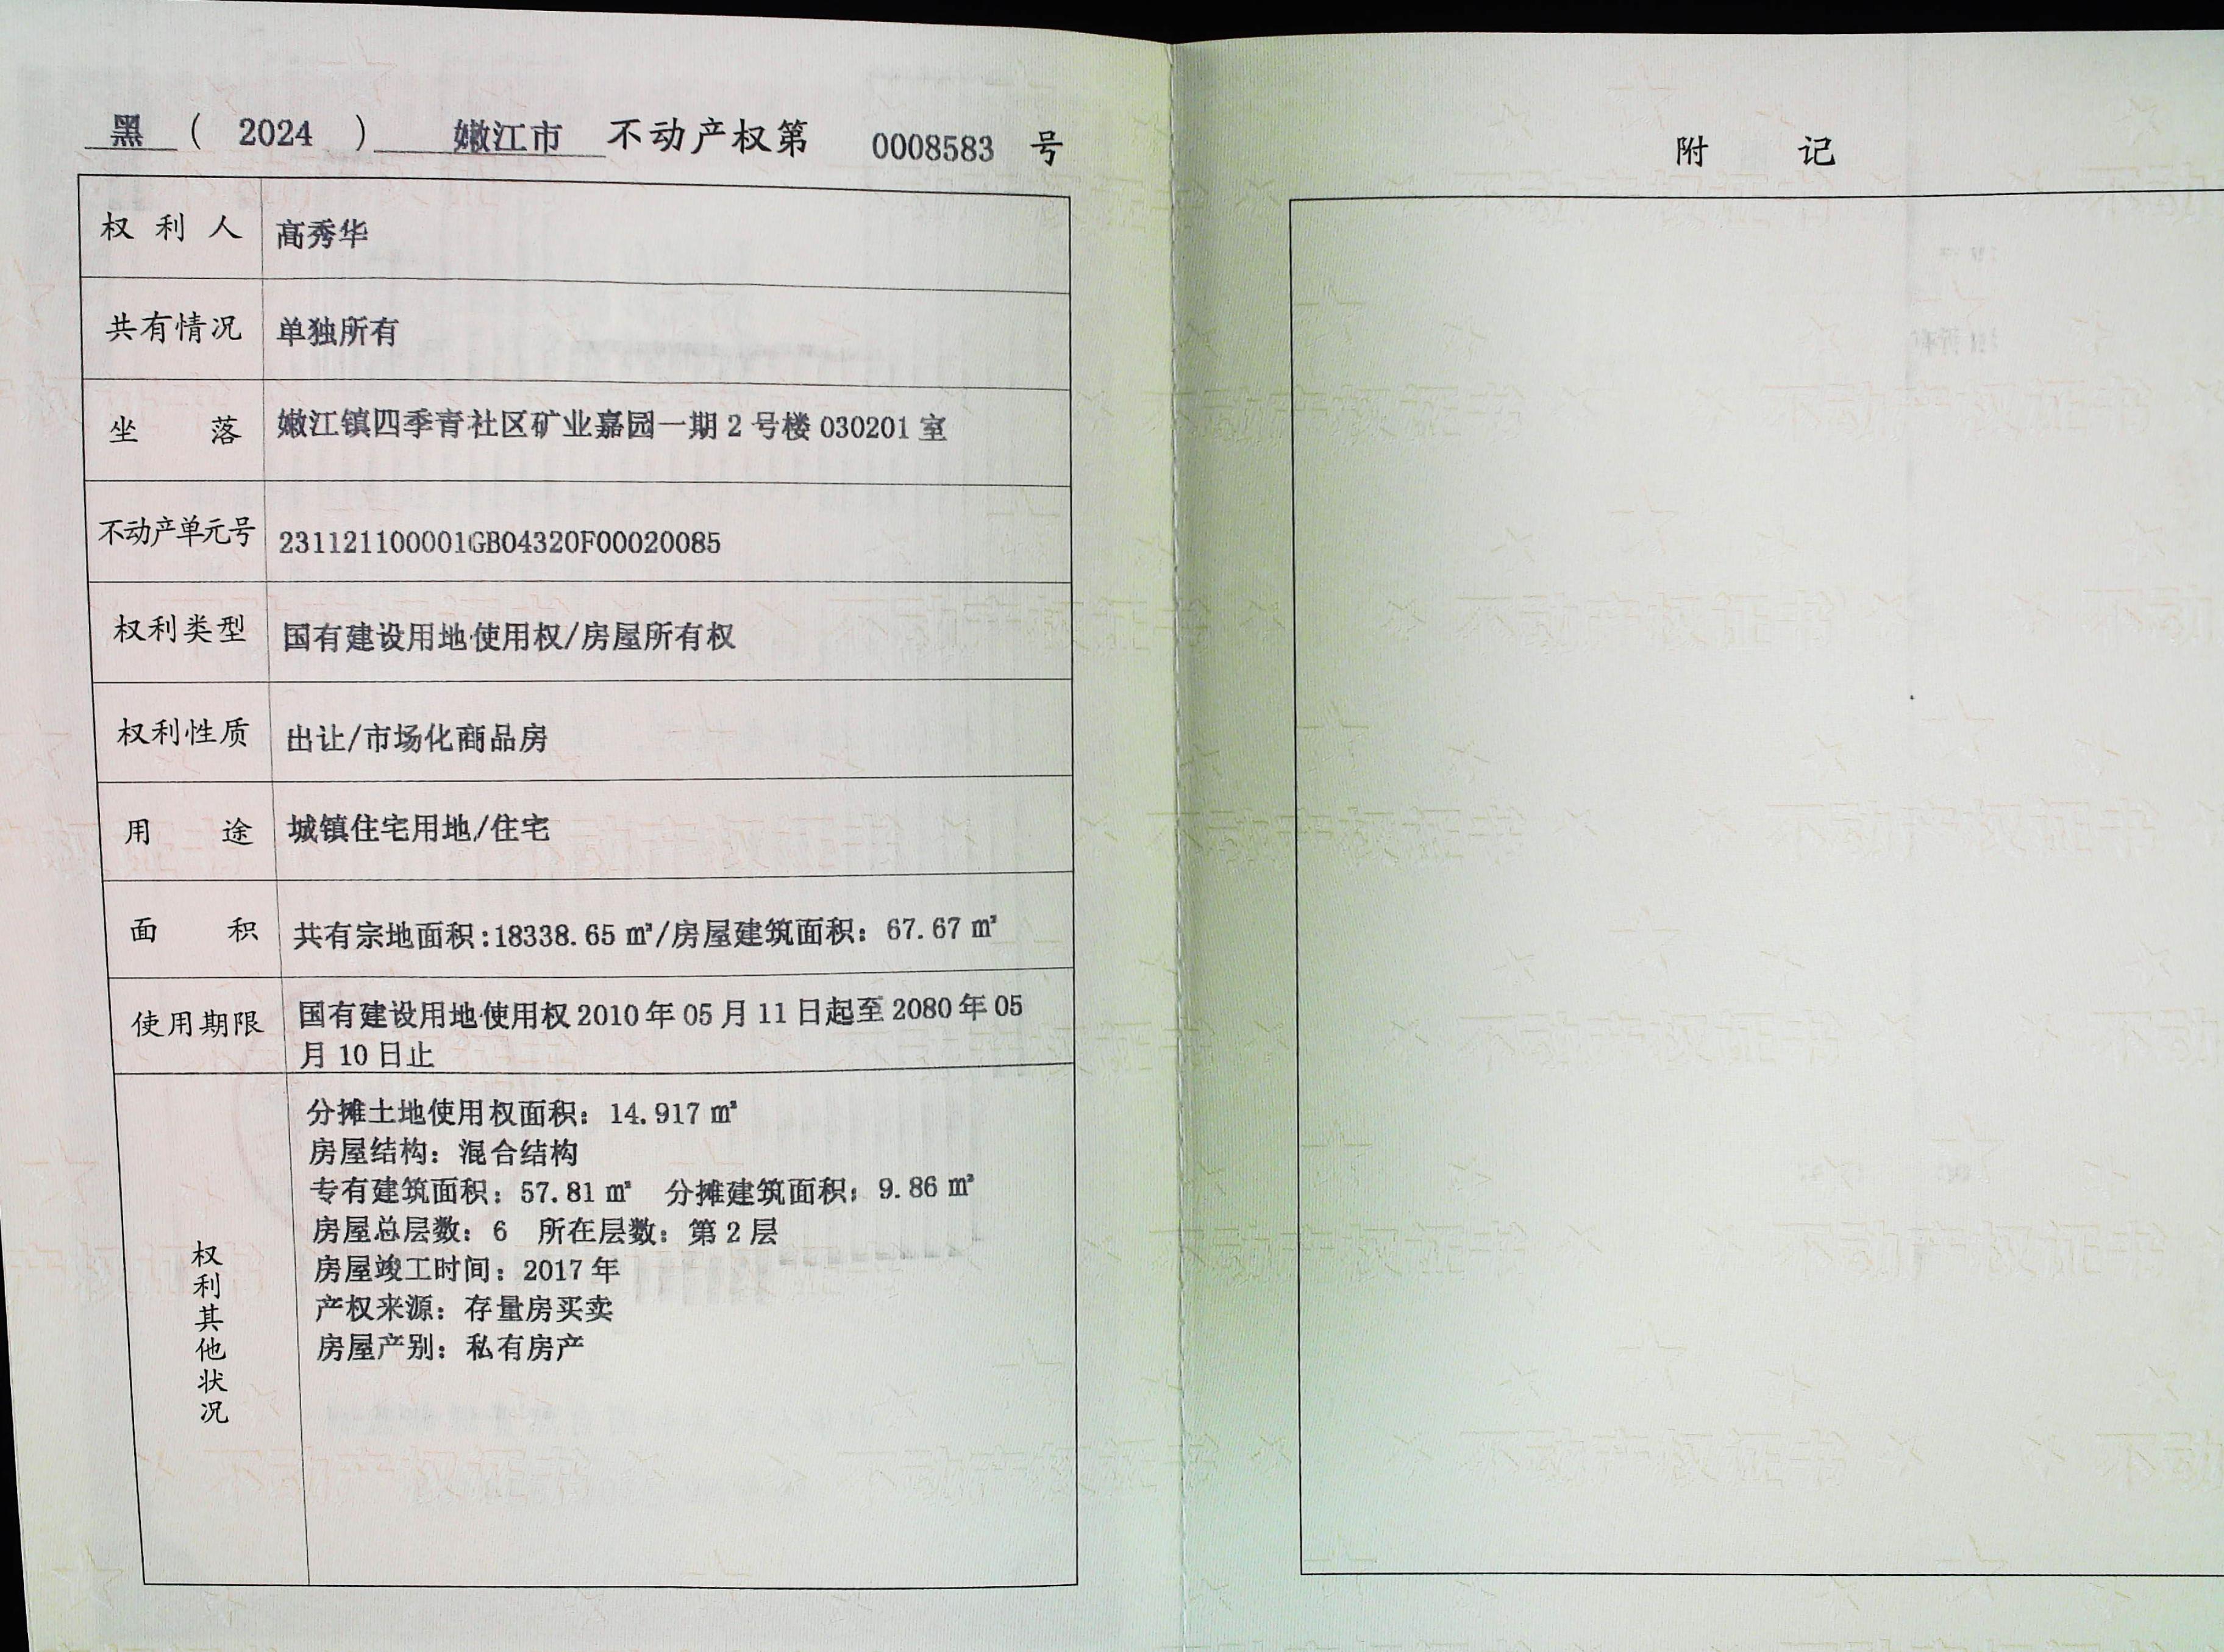 黑 ( 2024 ) 嫩江市 不动产权第 0008583 号
权利人 高秀华
共有情况 单独所有
坐落 嫩江镇四季青社区矿业嘉园一期 2 号楼 030201 室
不动产单元号 231121100001GB04320F00020085
权利类型 国有建设用地使用权/房屋所有权
权利性质 出让/市场化商品房
用途 城镇住宅用地/住宅
面积 共有宗地面积:18338.65 ㎡/房屋建筑面积: 67.67 ㎡
使用期限 国有建设用地使用权 2010 年 05 月 11 日起至 2080 年 05
月 10 日止
权利其他状况
分摊土地使用权面积: 14.917 ㎡
房屋结构: 混合结构
专有建筑面积: 57.81 ㎡ 分摊建筑面积: 9.86 ㎡
房屋总层数: 6 所在层数: 第 2 层
房屋竣工时间: 2017 年
产权来源: 存量房买卖
房屋产别: 私有房产
附记